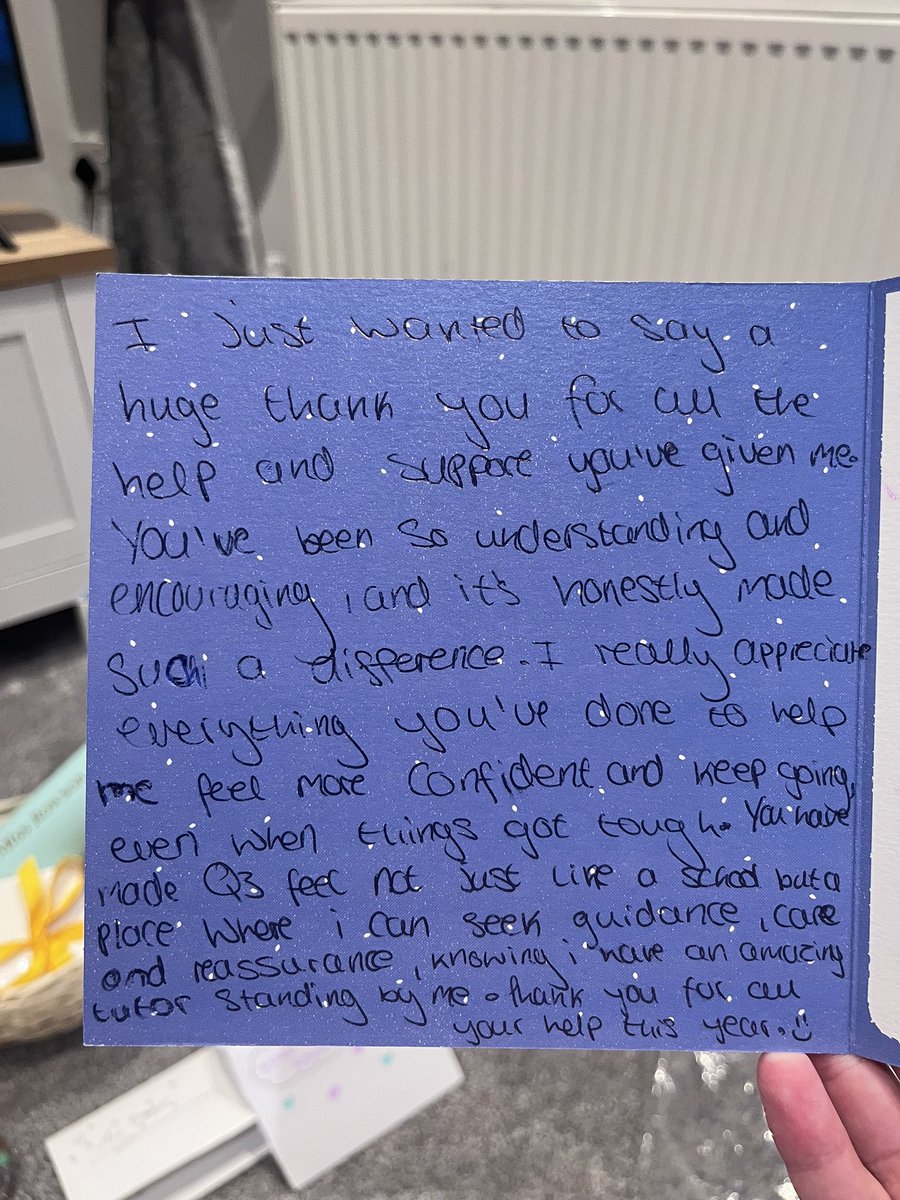 I just wanted to say a
huge thank you for all the
help and support you've given me.
You've been so understanding and
encouraging, and it's honestly made
such a difference. I really appreciate
everything you've done to help
me feel more confident and keep going,
even when things got tough. You have
made Q3 feel not just like a school but a
place where i can seek guidance, care
and reassurance, knowing i have an amazing
tutor standing by me. Thank you for all
your help this year. :)